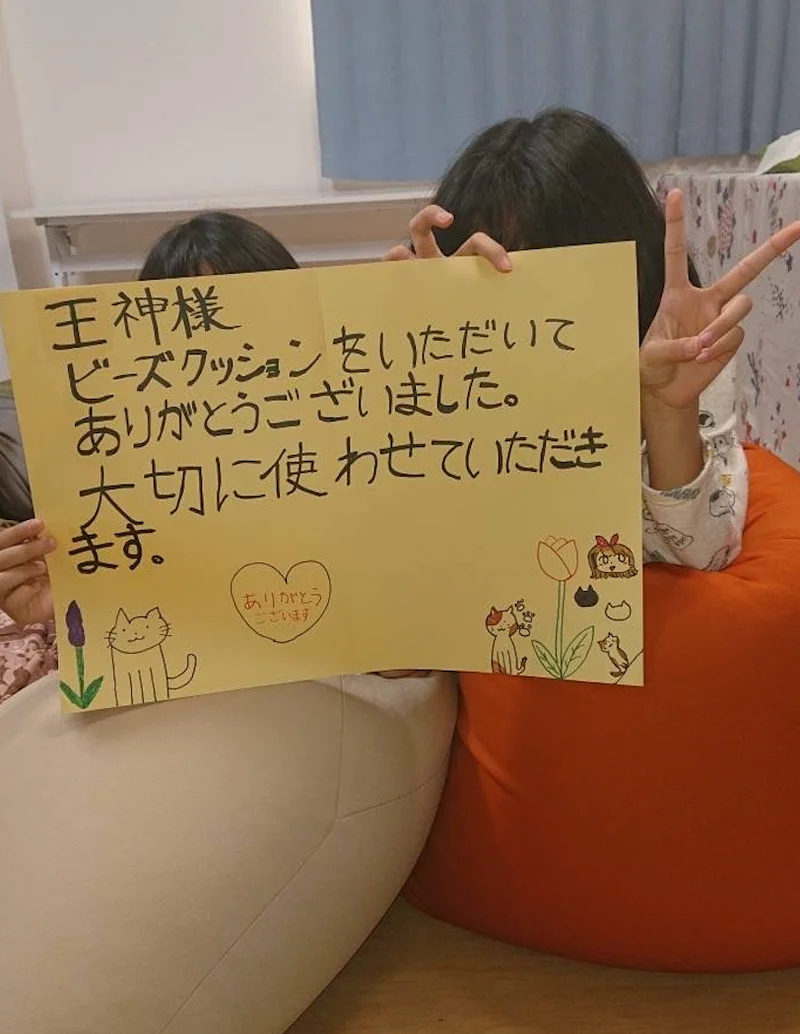 王神様
ビーズクッションをいただいて
ありがとうございました。
大切に使わせていただき
ます。
ありがとう
ございます